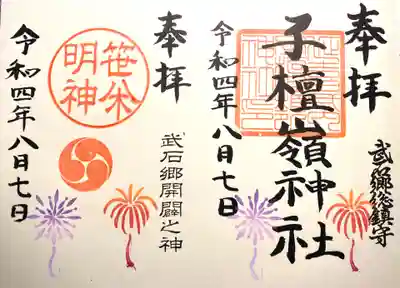 奉拝
子檀嶺神社
武石郷総鎮守
令和四年八月七日
奉拝
笹焼明神
武石郷開闢之神
令和四年八月七日